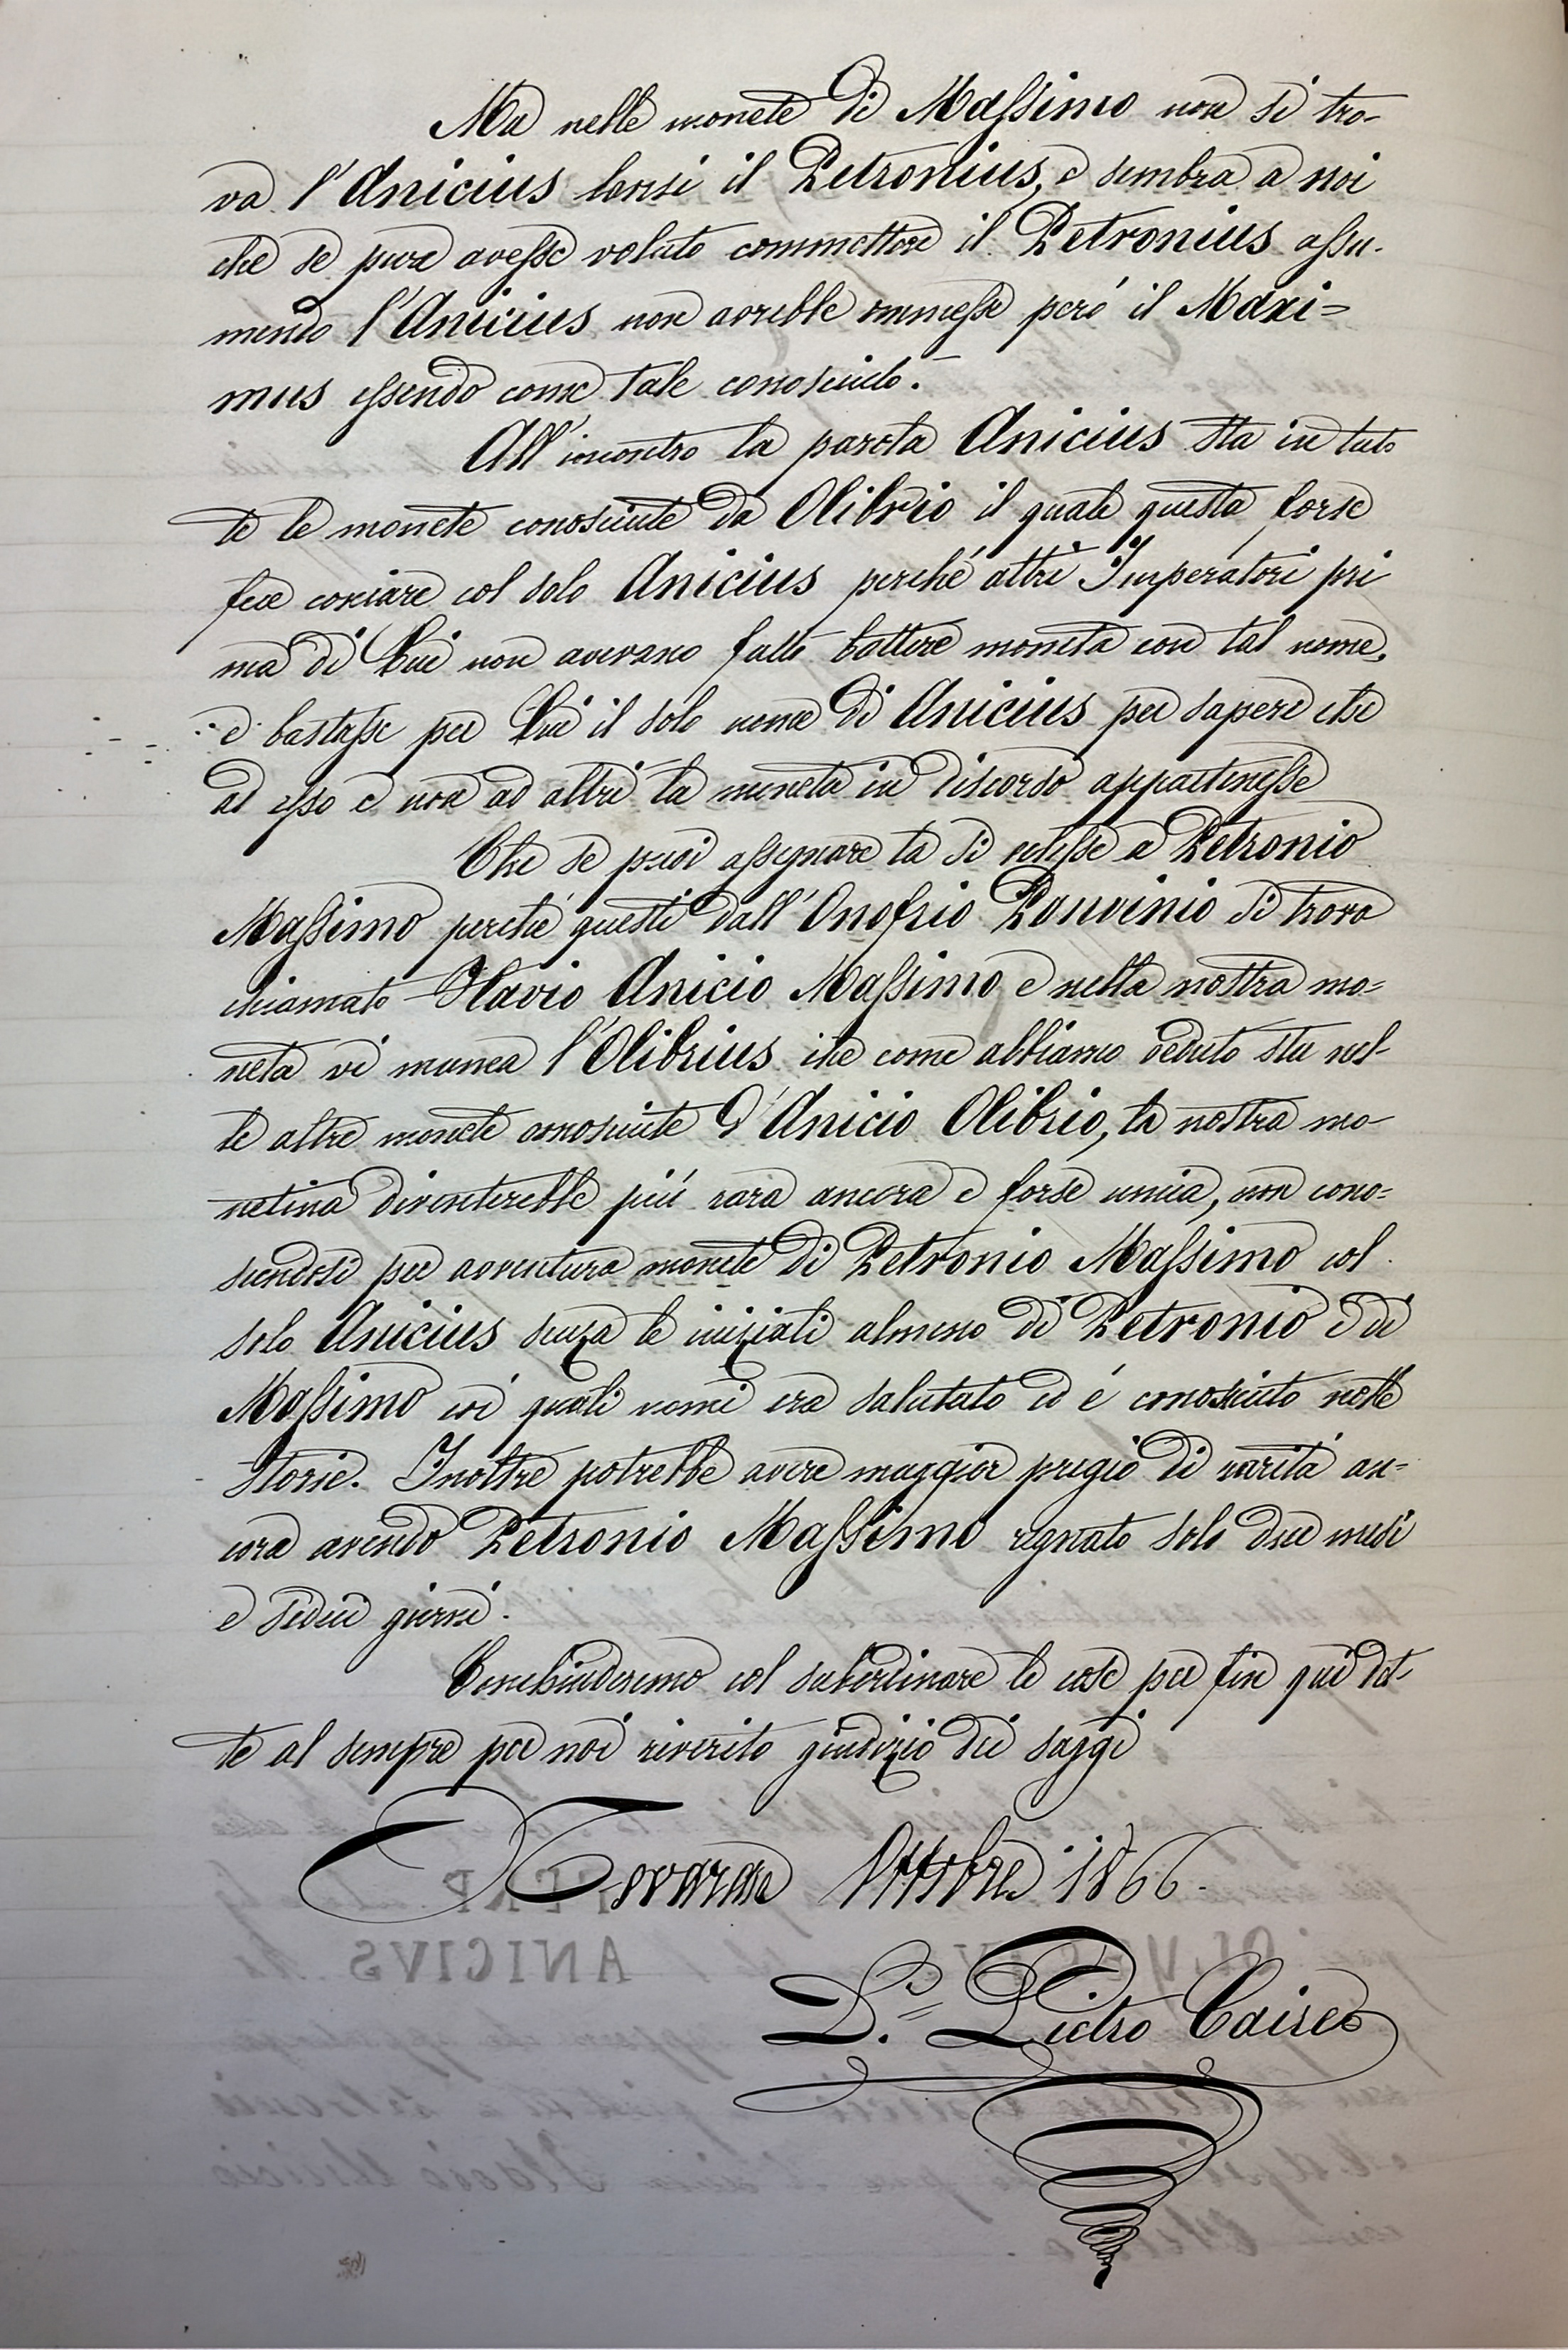 Ma nelle monete di Massimo non si tro-
va l'Anicius bensi il Petronius, e sembra a noi
che se pure avesse voluto ommettere il Petronius assu-
mendo l'Anicius non avrebbe ommesse peró il Maxi=
mus essendo come tale conosciuto.
All'incontro la parola Anicius sta in tut-
te le monete conosciute da Olibrio il quale questa forse
fece coniare col solo Anicius perché altri Imperatori pri
ma di Lui non avevano fatto battere moneta con tal nome,
e bastasse per Lui il solo nome di Anicius per sapere che
ad esso e non ad altri la moneta in discorso appartenesse
Che se puoi assegnare la si volesse a Petronio
Massimo perché questi dall'Onofrio Panvinio si trova
chiamato Flavio Anicio Massimo e nella nostra mo=
neta vi manca l'Olibrius che come abbiamo veduto sta nel-
le altre monete conosciute d'Anicio Olibrio, la nostra mo-
netina diventerebbe piú rara ancora e forse unica, non cono=
scendosi per avventura monete di Petronio Massimo col
solo Anicius senza le iniziali almeno di Petronio e di
Massimo coi quali nomi era salutato ed é conosciuto nelle
storie. Inoltre potrebbe avere maggior pregio di raritá an=
cora avendo Petronio Massimo regnato solo due mesi
e sedici giorni.
Conchiuderemo col subordinare le cose per fin qui det-
te al sempre per noi riverito giudizio dei saggi
Novara Ottobre 1866.
D.r Pietro Caire